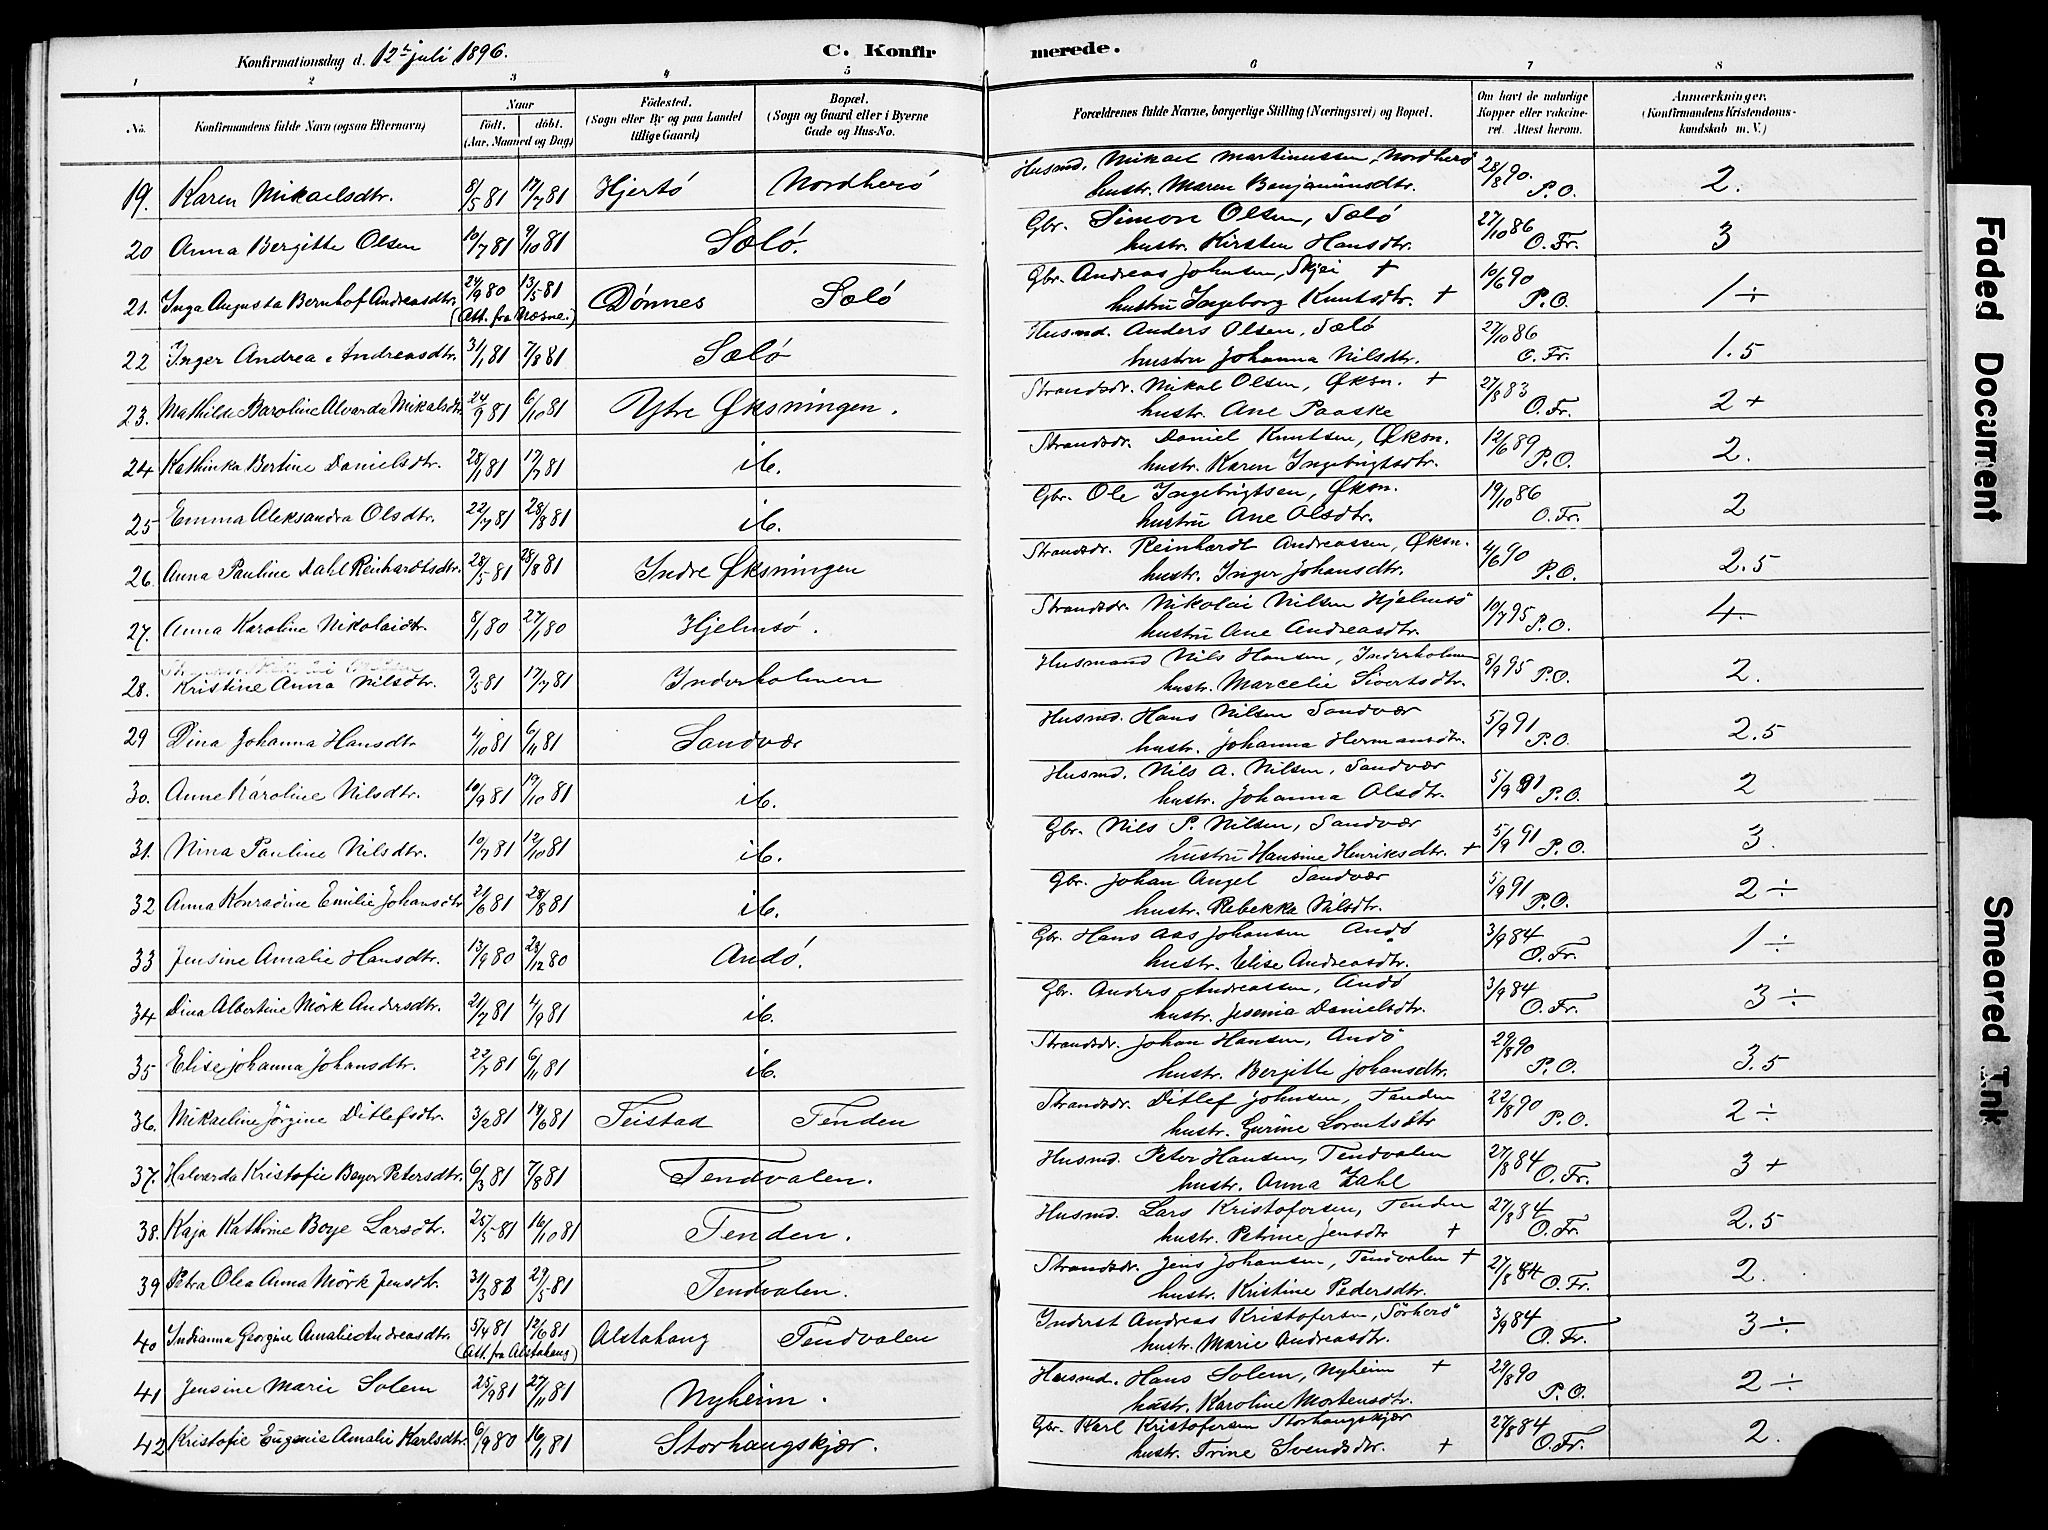 Konfirmationsdag d. 12te juli 1896.
C. Konfirmerede.
1 2 3 4 5 6 7 8
No. Konfirmandens fulde Navn (ogsaa Efternavn) Naar Födt. döbt. (Aar, Maaned og Dag) Födested. (Sogn eller By og paa Landet tillige Gaard) Bopæl. (Sogn og Gaard eller i Byerne Gade og Hus-No. Forældrenes fulde Navne, borgerlige Stilling (Næringsvei) og Bopæl. Om havt de naturlige Kopper eller vakcineret. Attest herom. Anmærkninger. (Konfirmandens Kristendomskundskab m. V.)
Husmd. Mikael Martinussen, Nordherö 28/8 90.
19. Karen Mikaelsdtr. 8/5 81 17/7 81 Hjertö Nordherö hustr. Maren Benjaminsdtr. P.O. 2.
Gbr. Simon Olsen, Sælö 27/10 86
20 Anna Bergitte Olsen 10/7 81 9/10 81 Sælö. hustr. Kirsten Hansdtr. O.Fr. 3
Gbr. Andreas Johnsen, Skjei + 10/6 90
21. Inga Augusta Bernhof Andreasdtr. 24/9 80 13/5 81 Dönnes Sælö hustru Ingeborg Knutsdtr. + P.O. 1÷
(Att. fra Næsne.)
Husmd. Anders Olsen, Sælö 27/10 86
22 Inger Andrea Andreasdtr. 31/1 81 7/8 81 Sælö hustru Johanna Nilsdtr. O.Fr. 1.5
Strandsdr. Mikal Olsen, Øksn. + 27/8 83
23. Mathilde Baroline Alvarda Mikalsdtr 24/9 81 6/10 81 Ytre Øksningen. hustr. Ane Paaske O.Fr. 2+
Strandsdr. Daniel Knutsen, Øksn. 12/6 89
24 Kathinka Bertine Danielsdtr. 28/1 81 17/7 81 ib. hustr. Karen Ingebrigtsdtr. P.O. 2.
Gbr. Ole Ingebrigtsen, Øksn. 19/10 86
25 Emma Aleksandra Olsdtr. 22/7 81 28/8 81 ib. hustru Ane Olsdtr. O.Fr. 2
Strandsdr. Reinhardt Andreassen, Øksn. 4/6 90
26. Anna Pauline Dahl Reinhardtsdtr. 28/5 81 28/8 81 Indre Øksningen hustr. Inger Johansdtr. P.O. 2.5
Strandsdr. Nikolai Nilsen Hjelmsö 10/7 95
27. Anna Karoline Nikolaidtr. 8/1 80 27/1 80 Hjelmsö. hustru Ane Andreasdtr. P.O. 4
Husmand Nils Hansen, Inderholmen 8/9 95 P.O.
28. Kristine Anna Nilsdtr. 9/5 81 17/7 81 Inderholmen hustr. Marcelie Sivertsdtr. 2.
Husmd. Hans Nilsen Sandvær 5/9 91
29 Dina Johanna Hansdtr 4/10 81 6/11 81 Sandvær hustr. Johanna Hermansdtr. P.O. 2.5
Husmd. Nils A. Nilsen, Sandvær 5/9 91
30. Anne Karoline Nilsdtr. 10/9 81 19/10 81 ib. hustr. Johanna Olsdtr. P.O. 2
Gbr. Nils P. Nilsen, Sandvær 5/9 91
31. Nina Pauline Nilsdtr. 10/7 81 12/10 81 ib. hustru Hansine Henriksdtr. + P.O. 3.
Gbr. Johan Angel Sandvær 5/9 91
32 Anna Konradine Emilie Johansdtr 21/6 81 28/8 81 ib. hustr. Rebekka Nilsdtr. P.O. 2÷
Gbr. Hans Aas Johansen Andö 3/9 84
33 Jensine Amalie Hansdtr. 13/9 80 29/12 80 Andö. hustr. Elise Andreasdtr. O.Fr. 1÷
Gbr. Anders Andreassen, Andö 3/9 84
34 Dina Albertine Mörk Andersdtr. 21/7 81 4/9 81 ib. hustr. Jesenia Danielsdtr. O.Fr. 3÷
Strandsdr. Johan Hansen, Andö 29/8 90
35 Elise Johanna Johansdtr. 22/7 81 6/11 81 ib. hustr. Bergitte Johansdtr. P.O. 3.5
Strandsdr. Ditlef Johnsen, Tenden 22/8 90
36. Mikaeline Jörgine Ditlefsdtr. 3/2 81 19/6 81 Teistad Tenden hustr. Gurine Lorentsdtr P.O. 2÷
Husmd. Peter Hansen, Tendvalen 27/8 84
37. Halvarda Kristofie Beyer Petersdtr. 6/3 81 7/8 81 Tendvalen. hustr. Anna Zahl O.Fr. 3+
Husmd. Lars Kristofersen, Tenden 27/8 84
38. Kaja Kathrine Boye Larsdtr. 25/5 81 16/10 81 Tenden. hustr. Petrine Jensdtr + O.Fr. 2.5
Strandsdr. Jens Johansen, Tendvalen + 27/8 84
39 Petra Olea Anna Mörk Jensdtr. 31/3 81 29/5 81 Tendvalen. hustr. Kristine Pedersdtr. O.Fr. 2.
Inderst Andreas Kristofersen, Sörherö 3/9 84
40 Indianna Georgine Amalie Andreasdtr. 5/4 81 12/6 81 Alstahaug Tendvalen hustr. Marie Andreasdtr. O.Fr. 3÷
(Att. fra Alstahaug)
Husmd. Hans Solem, Nyheim + 29/8 90
41 Jensine Marie Solem 25/9 81 27/11 81 Nyheim. hustr. Karoline Mortensdtr. P.O. 2÷
Gbr. Karl Kristofersen Storhaugskjær 27/8 84
42 Kristofie Eugenie Amalie Karlsdtr. 6/9 80 16/1 81 Storhaugskjær. hustr. Trine Svendsdtr. + O.Fr. 2.
Faded Document
Smeared Ink